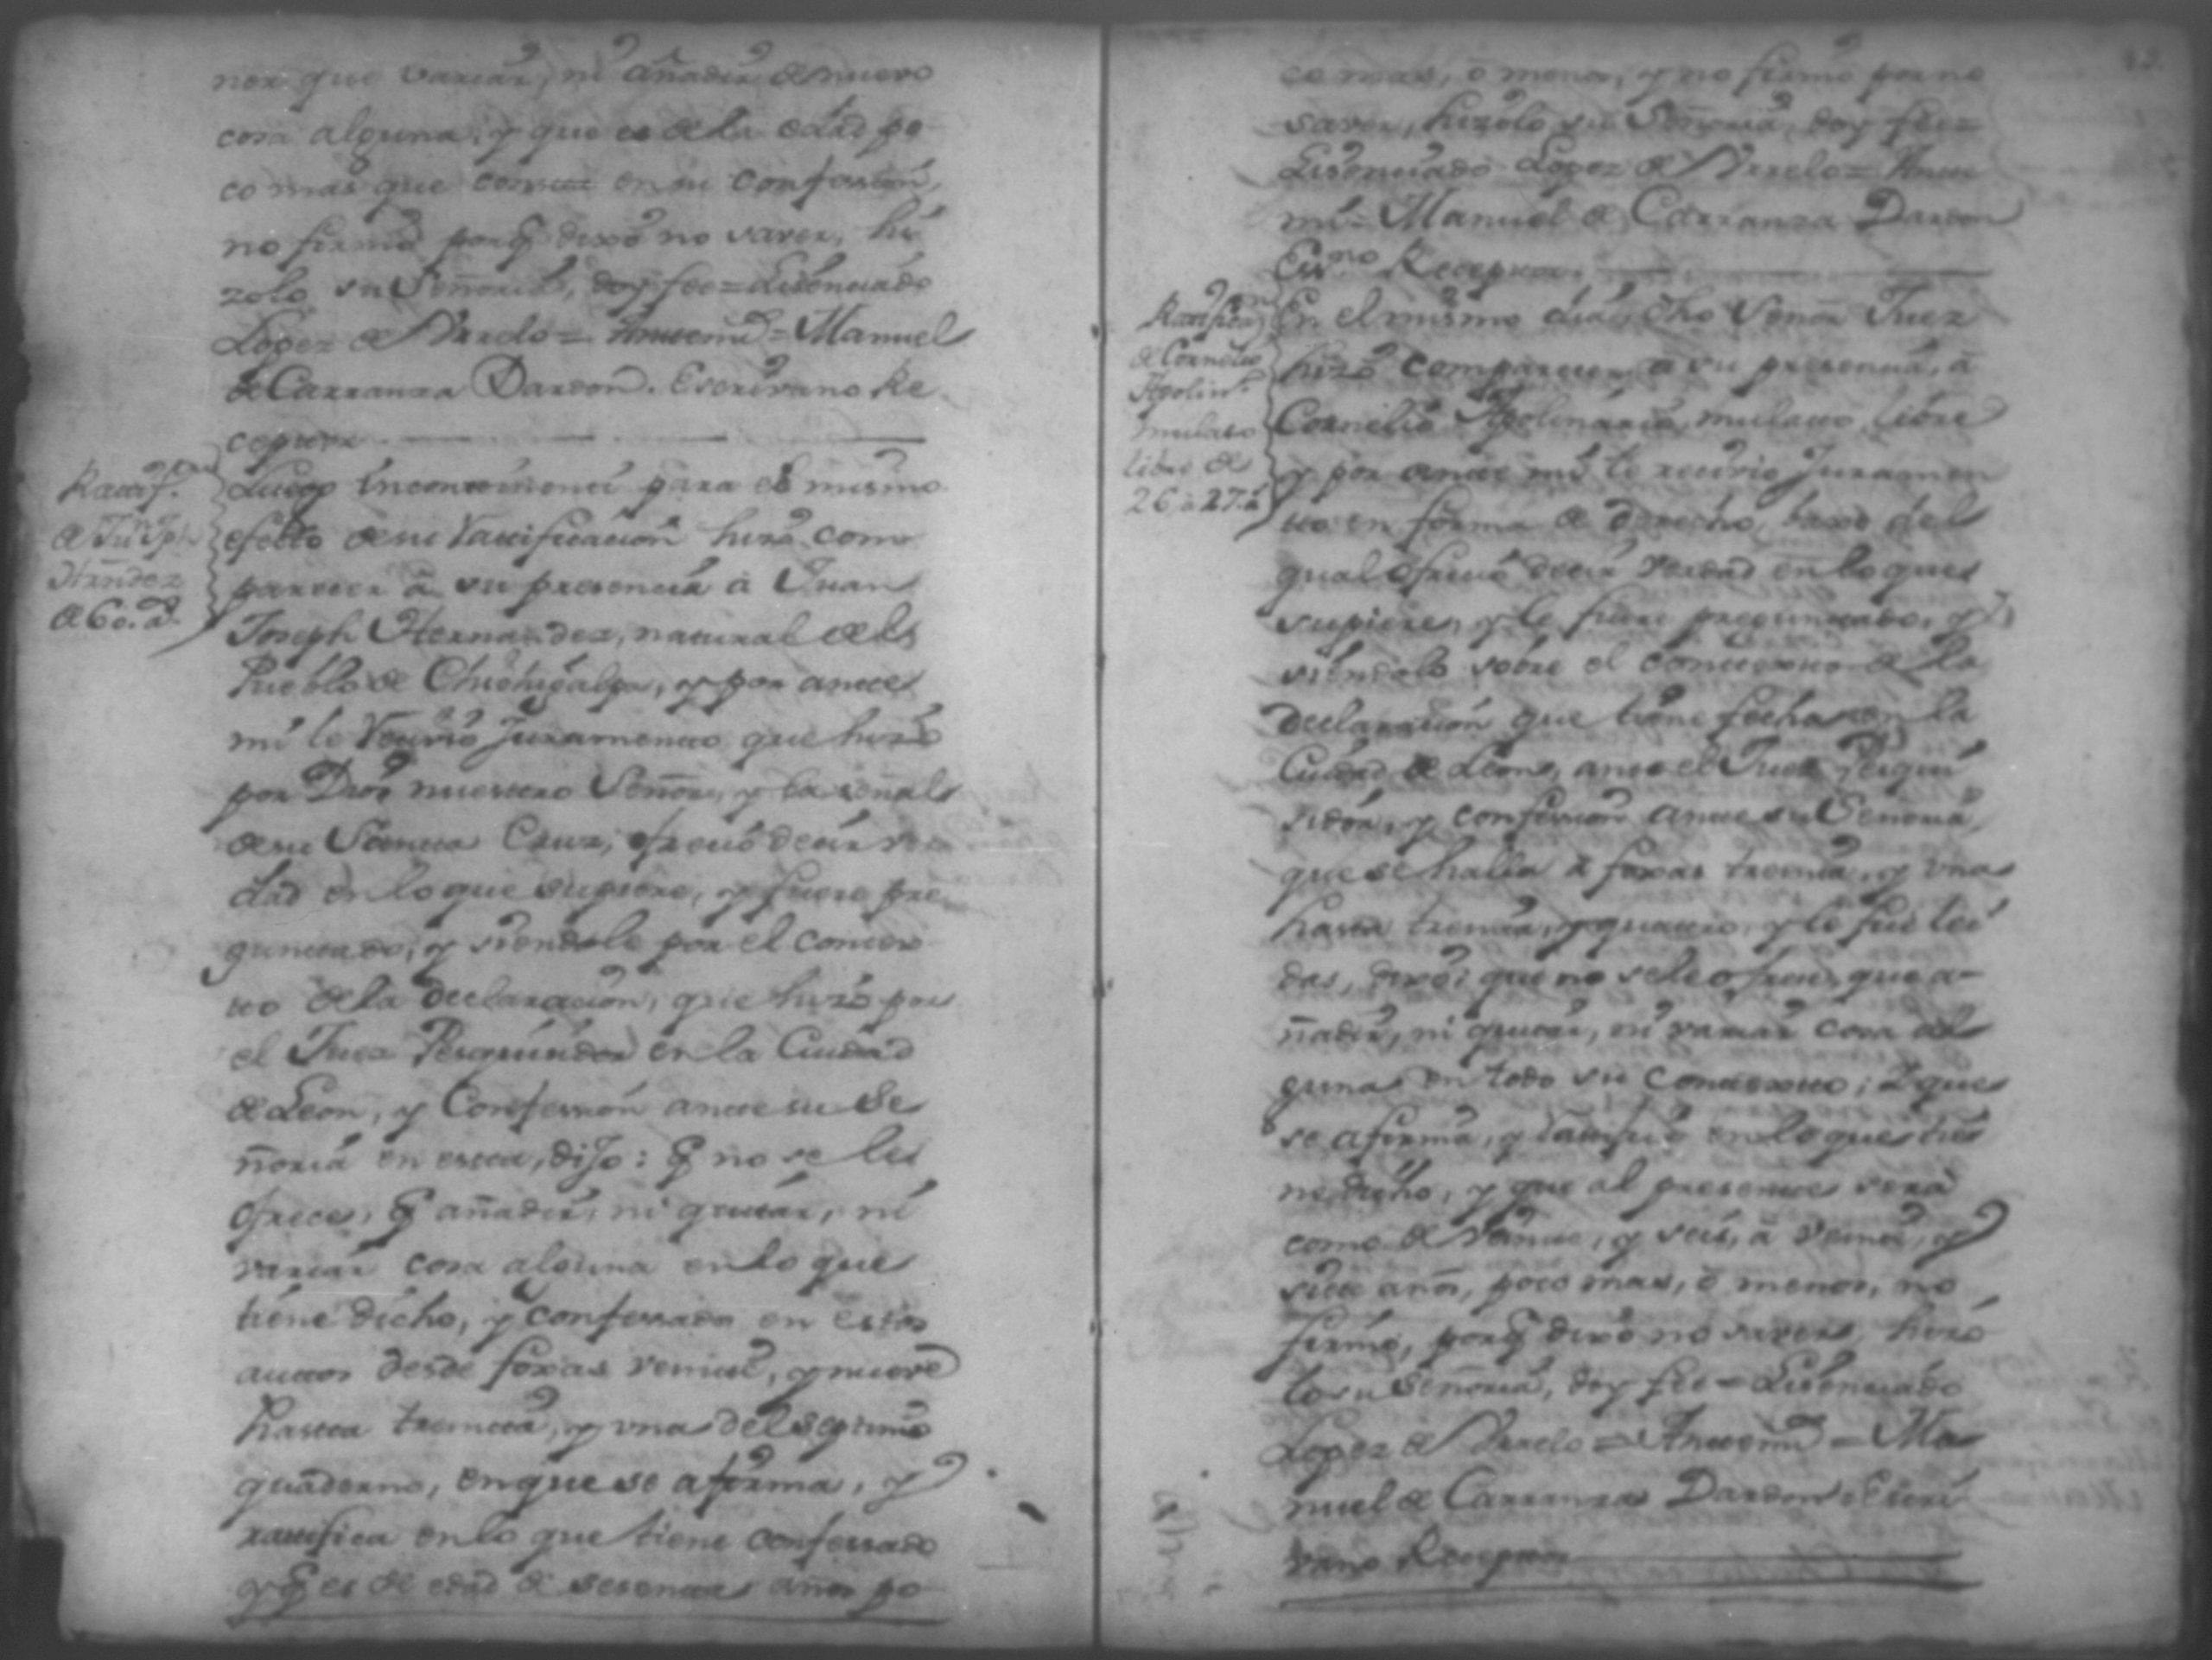 ner que variar, ni añadir de nuevo
cosa alguna, y que es de la edad po
co mas que consta en su confession,
no firmó porq̃ dixo no saver, hi
zolo su Señoria, doy fee = Lisenciado
Lopez de Urrelo = Antemi = Manuel
de Carranza Dardon. Escrivano Re
ceptor
Ratif.on
de Ju.n Jph
Hrñdez
de 60. a.s
Luego incontinenti para el mismo
efecto de su ratificación hizo com
parecer â su presencia â Juan
Joseph Hernandez, natural del
Pueblo de Chichigalpa, y por antte
mi le recivió Juramento que hizo
por Dios nuestro Señor, y la señal
de su Santta Cruz, ofreció decir ver
dad en lo que supiere, y fuere pre
guntado, y siendole por el contex
to de la declaracion, que hizo por
el Juez Pesquisidor en la Ciudad
de Leon, y Confession ante su Se
ñoria en esta, dijo: q̃ no se le
ofrece, q̃ añadir, ni quitar, ni
variar cosa alguna en lo que
tiene dicho, y confessado en estos
auttos desde foxas veinte, y nueve
hasta treinta, y una del septimo
quaderno, en que se afirma, y
ratifica en lo que tiene confessado
y q̃ es de edad de sesenta años po
co mas, ô menos, y no firmó por no
saver, hizolo su Señoria, doy fee =
Lisenciado Lopez de Urrelo = Ante
mi = Manuel de Carranza Dardon
Es.no Receptor
Ratif.on
de Cornelio
Apolin.o
mulato
libre de
26 â 27. a
En el mismo dia, dho Señor Juez
hizo comparecer â su presencia, â
Cornelio Apolinario, mulatto libre
y por ante mi le recivio Juramen
to en forma de derecho, baxo del
qual ofreció decir verdad en lo que
supiere, y le fuere preguntado, y
siendolo sobre el contexto de la
declaracion que tiene fecha en la
Ciudad de Leon, ante el Juez Pesqui
sidor, y confession ante su Señoria,
que se halla â foxas treinta, y una
hasta treinta, y quatro, y le fue lei
das, dixo: que no se le ofrece, que a-
ñadir, ni quitar, ni variar cosa al
guna en todo su contexto; Y que
se afirma, y ratifica en lo que tie
ne dicho, y que al presente será
como de veinte, y seis, â veinte, y
siete años, poco mas, ô menos, no
firmó, porq̃ dixo no saver, hizo
lo su Señoria, doy fee = Lisenciado
Lopez de Urrelo = Antemi = Ma
nuel de Carranza Dardon Escri
vano Receptor